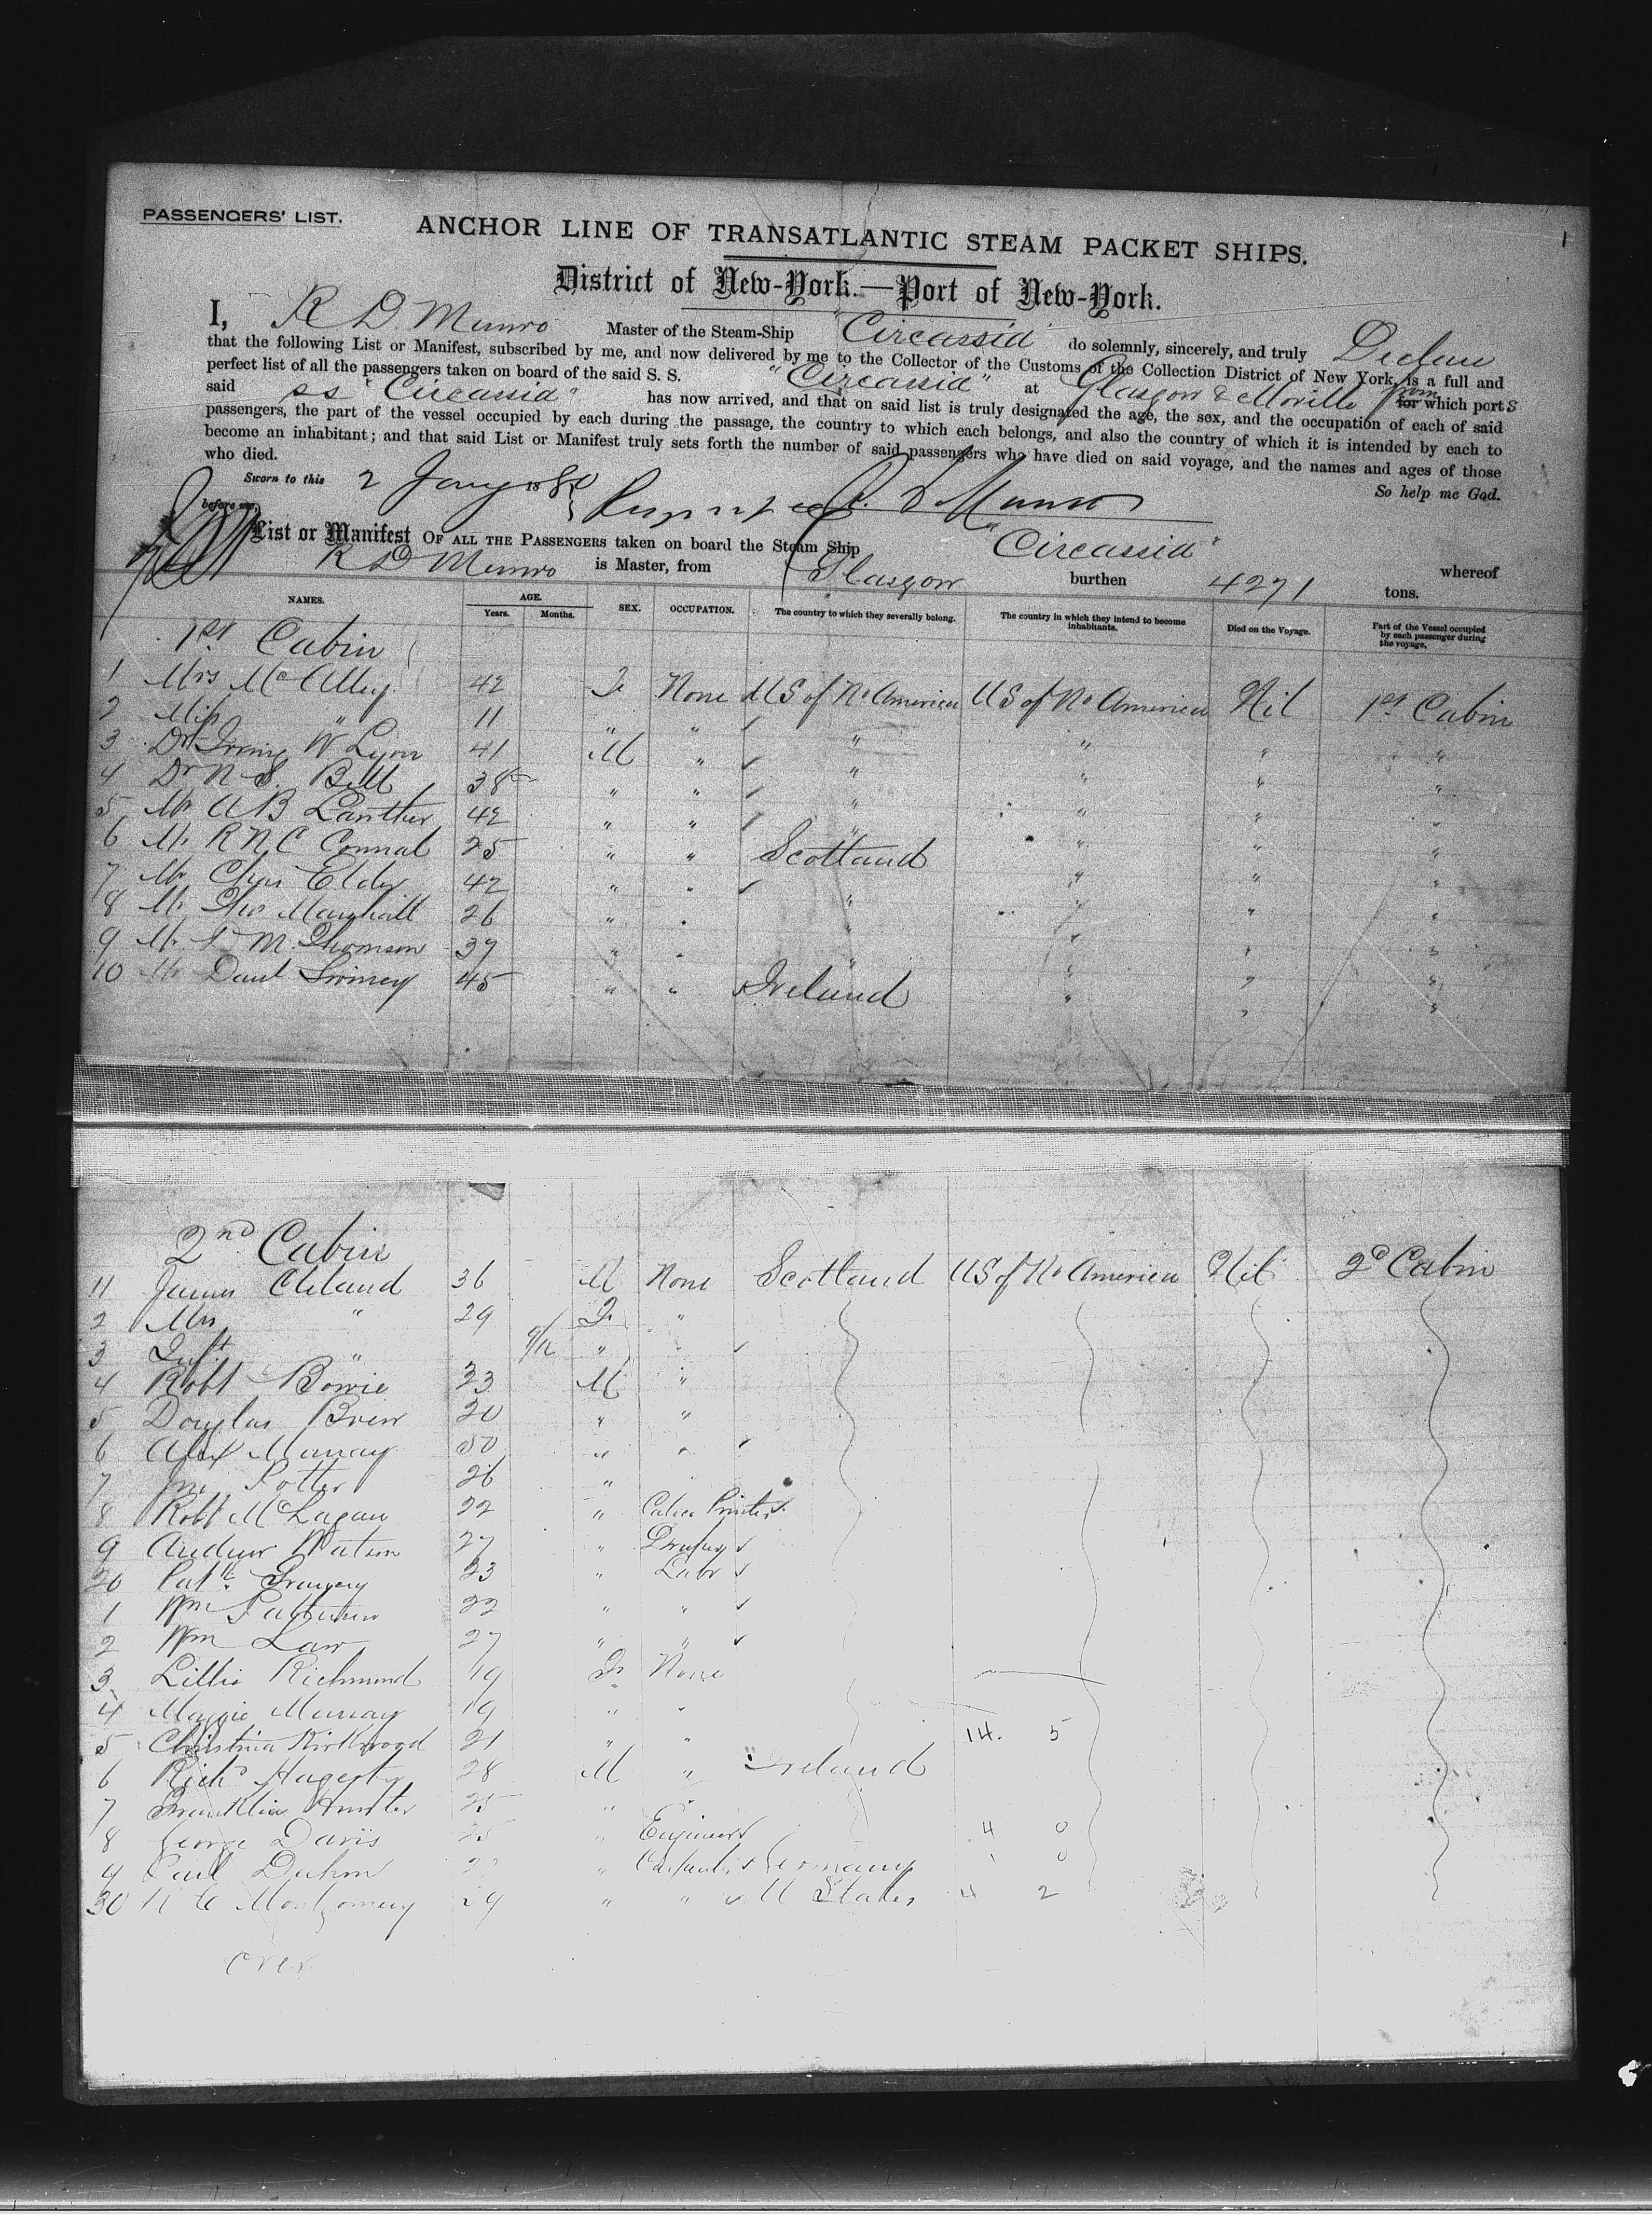 PASSENGERS' LIST.
1
ANCHOR LINE OF TRANSATLANTIC STEAM PACKET SHIPS.
District of New-York.—Port of New-York.
I, R D Munro Master of the Steam-Ship "Circassia" do solemnly, sincerely, and truly Declare
that the following List or Manifest, subscribed by me, and now delivered by me to the Collector of the Customs of the Collection District of New York, is a full and
perfect list of all the passengers taken on board of the said S. S. "Circassia" at Glasgow & Moville from for which ports
said ss "Circassia" has now arrived, and that on said list is truly designated the age, the sex, and the occupation of each of said
passengers, the part of the vessel occupied by each during the passage, the country to which each belongs, and also the country of which it is intended by each to
become an inhabitant; and that said List or Manifest truly sets forth the number of said passengers who have died on said voyage, and the names and ages of those
who died. So help me God.
Sworn to this 2 Jany 1880 R. D Munro
before me,
List or Manifest OF ALL THE PASSENGERS taken on board the Steam Ship "Circassia" whereof
R D Munro is Master, from Glasgow burthen 4271 tons.
NAMES. AGE. Years. Months. SEX. OCCUPATION. The country to which they severally belong. The country in which they intend to become inhabitants. Died on the Voyage. Part of the Vessel occupied by each passenger during the voyage.
1st Cabin
1 Mrs 42 F None US of No America US of No America Nil 1st Cabin
2 Miss " 11 " " " " " "
3 Dr Irving W Lyon 41 M " " " " "
4 Dr N S. Bell 38 " " " " " "
5 Mr A B 42 " " " " " "
6 Mr R N C Connal 25 " " Scotland " " "
7 Mr Chas Elder 42 " " " " " "
8 Mr Marshall 26 " " " " " "
9 Mr M. Thomson 39 " " " " " "
10 Mr 45 " " Ireland " " "
2nd Cabin
11 James Cleland 36 M None Scotland US of No America Nil 2d Cabin
2 Mrs " 29 F "
3 Inft " 9/12 " "
4 Robt Bowie 23 M "
5 Douglas 20 " "
6 Alex Murray 50 " "
7 Jno Potter 26 " "
8 Robt McLagan 22 " Calico Printer
9 Andrew Watson 27 "
20 Patk 23 " Labr
1 Wm 22 " "
2 Wm Law 27 " "
3 Lillie Richmond 19 F None
4 Maggie Murray 19 " "
5 Christina Kirkwood 21 " " 14. 5
6 Richd Hagerty 28 M " Ireland
7 Franklin Hunter 25 "
8 George Davis 25 " Engineer 4 0
9 Carl " Germany 0
30 Montgomery 29 " " U States 4 2
over